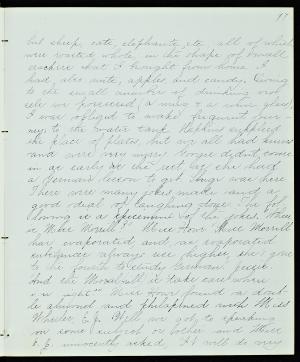 97
but sheep, cats, elephants, etc. all of which
were roasted whole, in the shape of small
crackers that I brought from home. I
had also nuts, apples and candy. Owing
to the small number of drinking
we possessed, a mug & a wine glass,
I was obliged to make frequent jour-
neys to the water tank. Napkins supplied
the place of plates, but we all had knives
and were very merry. didn't come
in as early as the rest as she had
a German lesson to get. Song was here
There were many jokes made and a
good deal of laughing done. The fol-
lowing is a specimen of the jokes. Where
is Miss Morrill? Miss Howe: Miss Morrill
has evaporated and, as evaporated
always rise higher, she's gone
to the fourth to study German
And the Moral is take care where
Miss Howe found a
is almond and philopened with Miss
Wheeler. E.J. Well we got to speaking
on some subject or other and Miss
E.J. innocently asked, Will do very